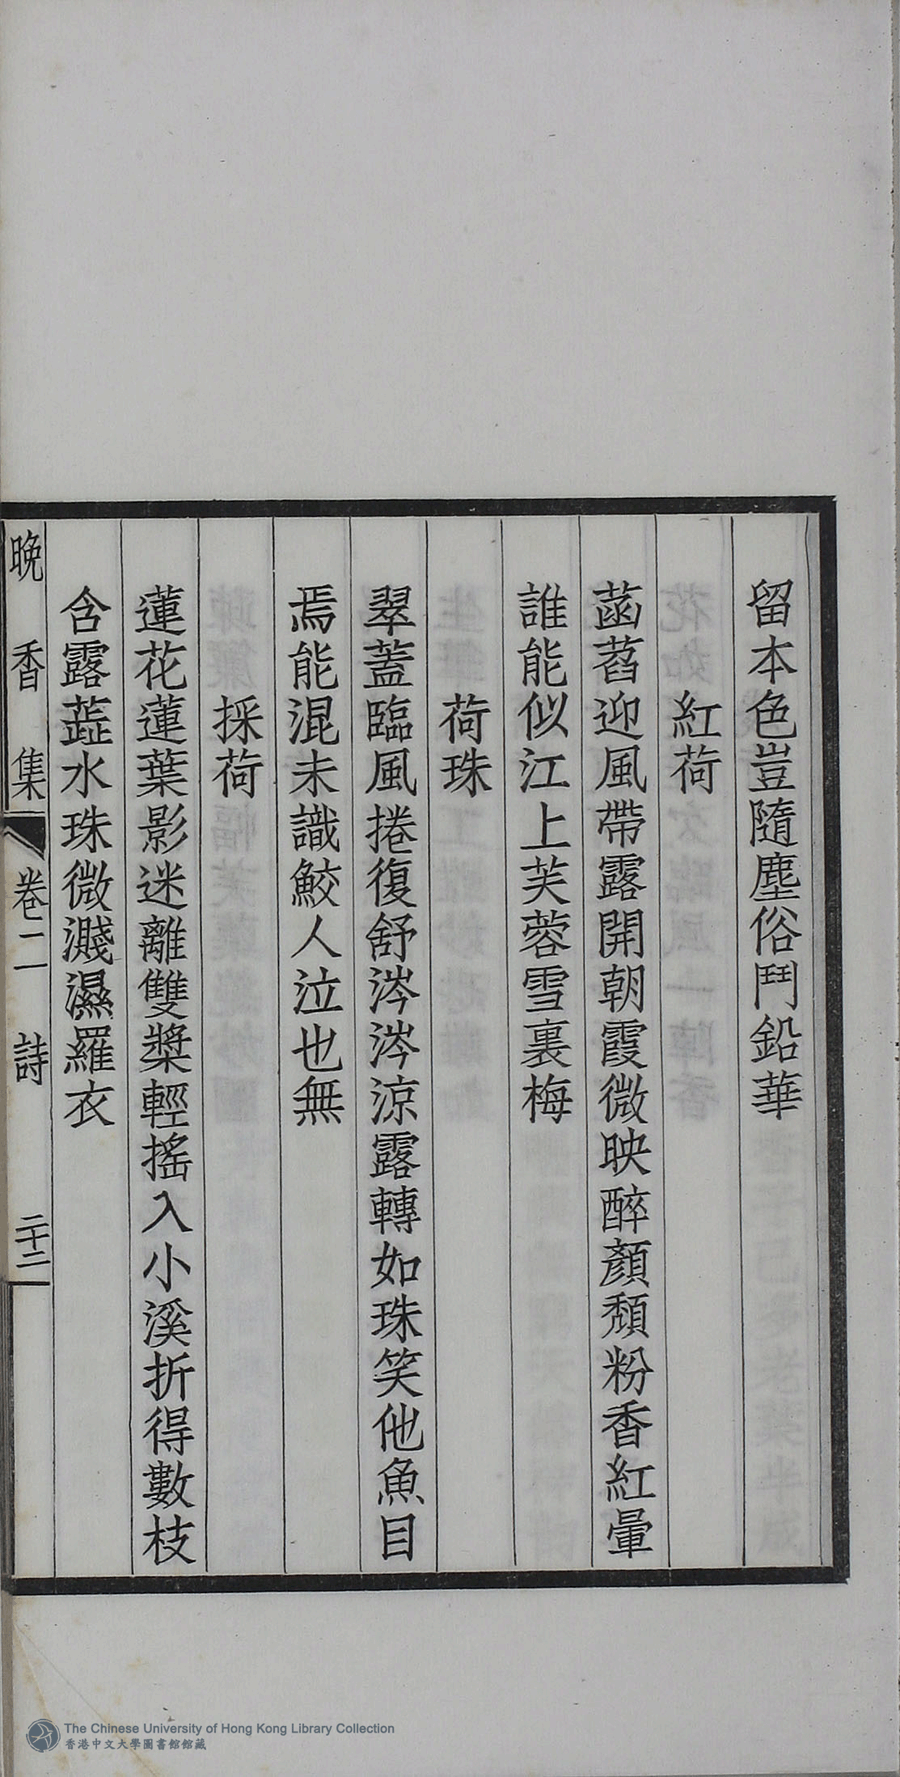 留本色豈隨塵俗鬥鉛華
紅荷
菡萏迎風帶露開朝霞微映醉顏頹粉香紅暈
誰能似江上芙蓉雪裏梅
荷珠
翠蓋臨風捲復舒涔涔涼露轉如珠笑他魚目
焉能混未識鮫人泣也無
採荷
蓮花蓮葉影迷離雙槳輕搖入小溪折得數枝
含露蕋水珠微濺濕羅衣
晚香集 卷二 詩 二十三
The Chinese University of Hong Kong Library Collection
香港中文大學圖書館館藏